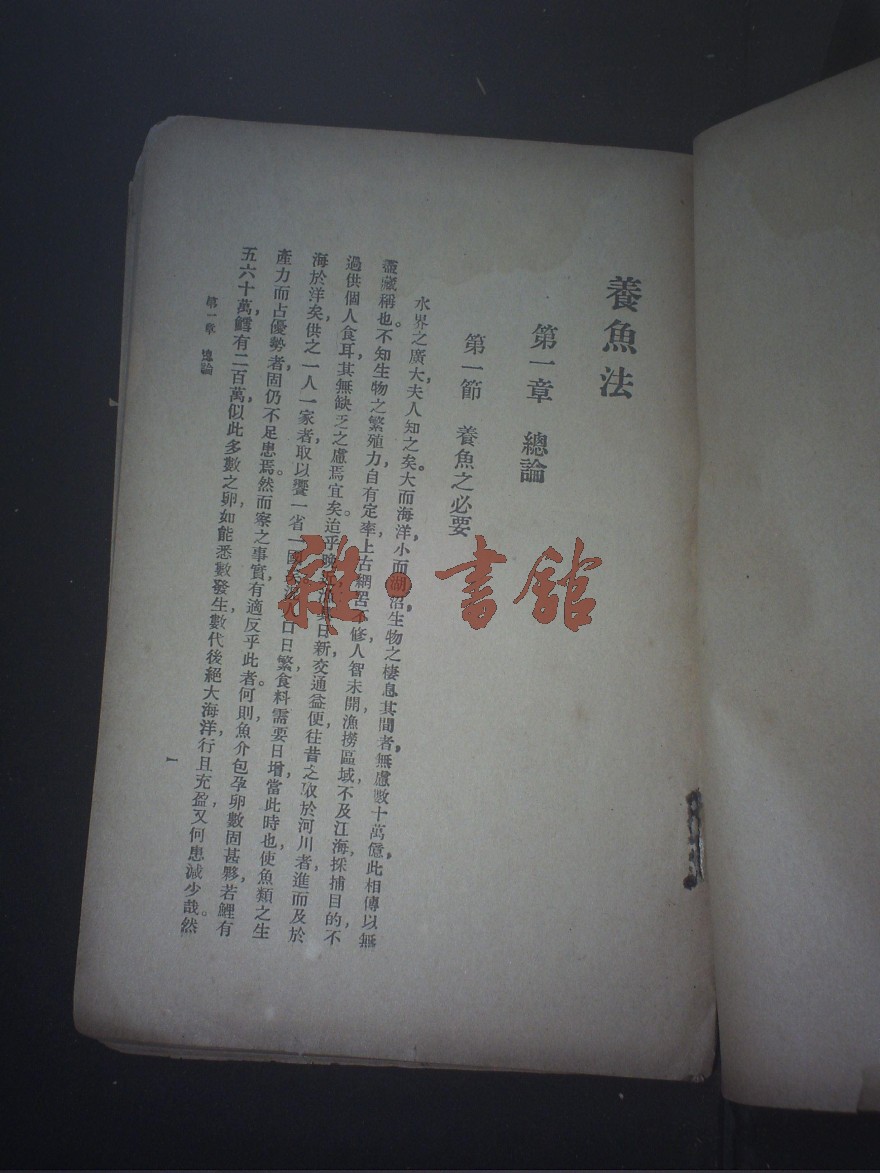 養魚法
第一章 總論
第一節 養魚之必要
水界之廣大，夫人知之矣。大而海洋，小而湖沼，生物之棲息其間者，無慮數十萬億，此相傳以無
盡藏稱也。不知生物之繁殖力，自有定率，上古網罟不修，人智未開，漁撈區域，不及江海，採捕目的，不
過供個人食耳，其無缺乏之慮焉宜矣。迨乎晚近，漁具日新，交通益便，往昔之取於河川者，進而及於
海於洋矣，供之一人一家者，取以饗一省一國矣，人口日繁，食料需要日增，當此時也，使魚類之生
產力而占優勢者，固仍不足患焉。然而察之事實，有適反乎此者。何則，魚介包孕卵數固甚夥，若鯉有
五六十萬，鱈有二百萬，似此多數之卵，如能悉數發生，數代後，絕大海洋，行且充盈，又何患減少哉。然
第一章 總論
一
雜·書館